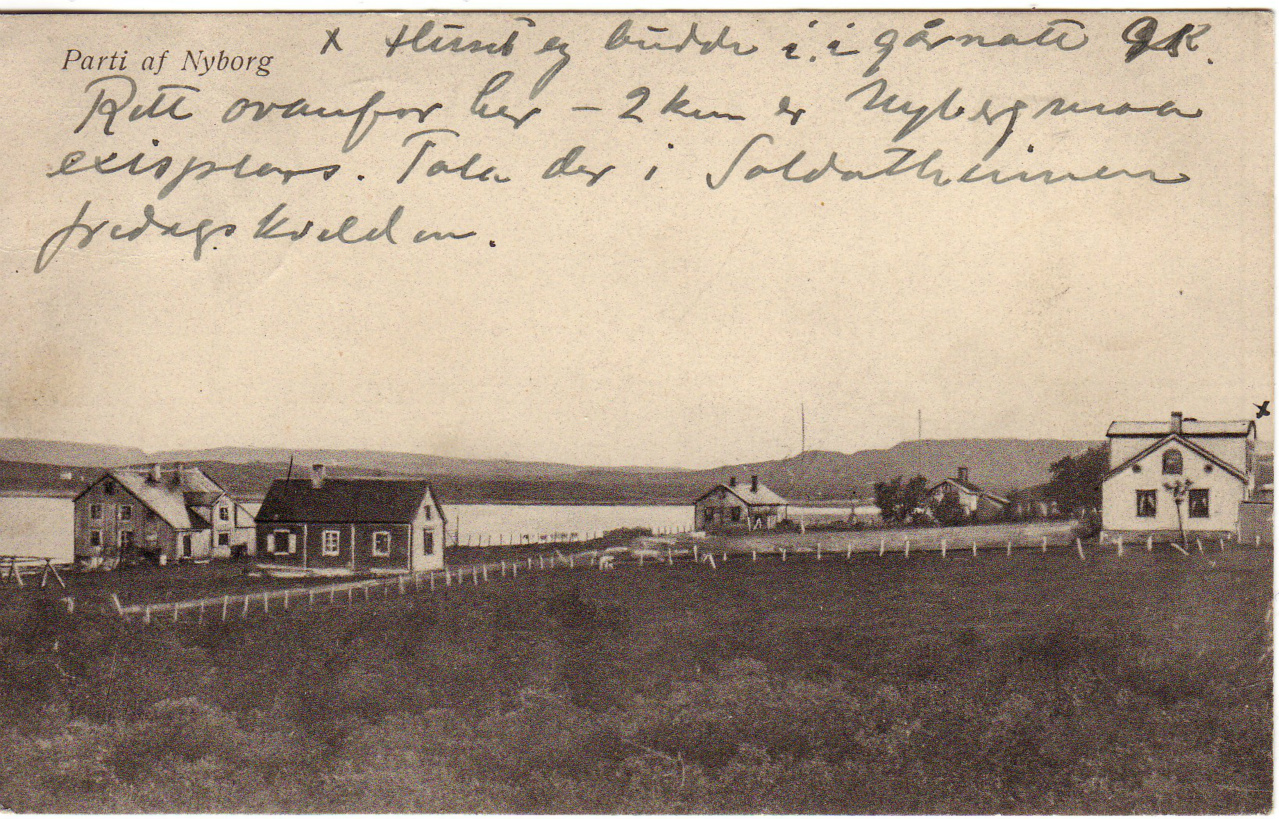 Parti af Nyborg
x Huset eg budde i i går natt GK.
Rett ovanfor her – 2 km er Nyborgmoa
exisplass. Tala der i Soldatheimen
fredagskvelden.
x